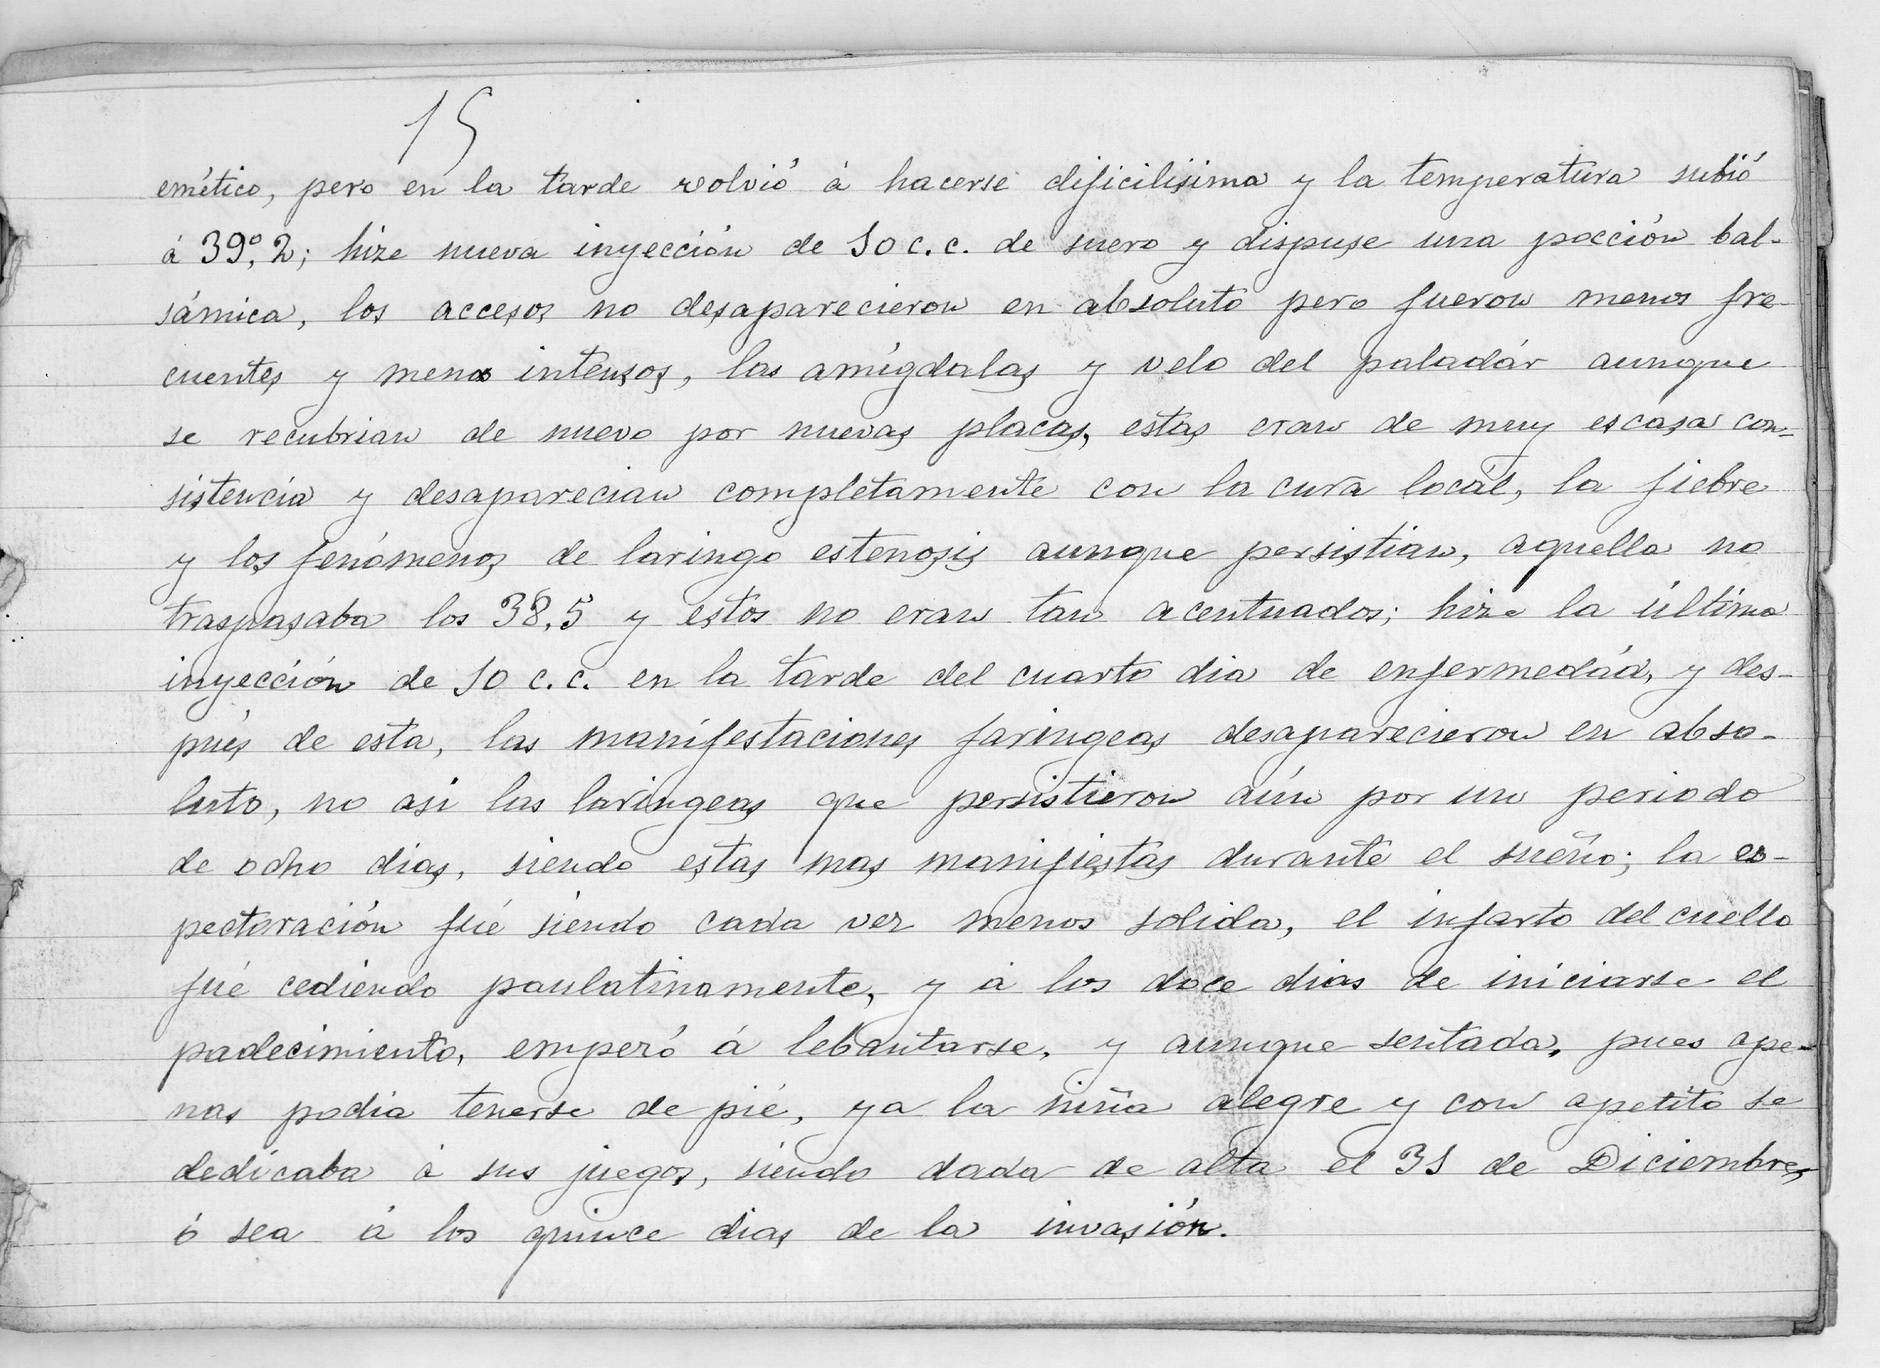 15
emético, pero en la tarde volvió á hacerse dificilisima y la temperatura subió
á 39º,2; hize nueva inyección de 10 c.c. de suero y dispuse una pocción bal-
sámica, los accesos no desaparecieron en absoluto pero fueron menos fre-
cuentes y menos intensos, las amigdalas y velo del paladár aunque
se recubrian de nuevo por nuevas placas, estas eran de muy escasa con-
sistencia y desaparecian completamente con la cura locál, la fiebre
y los fenómenos de laringo estenosis aunque persistian, aquella no
traspasaba los 38,5 y estos no eran tan acentuados; hize la última
inyección de 10 c.c. en la tarde del cuarto dia de enfermedád, y des-
pués de esta, las manifestaciones faringeas desaparecieron en abso-
luto, no asi las laringeas que persistieron aún por un periodo
de ocho dias, siendo estas mas manifiestas durante el sueño; la es-
pectoración fué siendo cada vez menos solida, el infarto del cuello
fué cediendo paulatinamente, y á los doce dias de iniciarse el
padecimiento, empezó á lebantarse, y aunque sentada, pues ape-
nas podia tenerse de pié, ya la niña alegre y con apetito se
dedicaba á sus juegos, siendo dada de alta el 31 de Diciembre,
ó sea á los quince dias de la invasión.